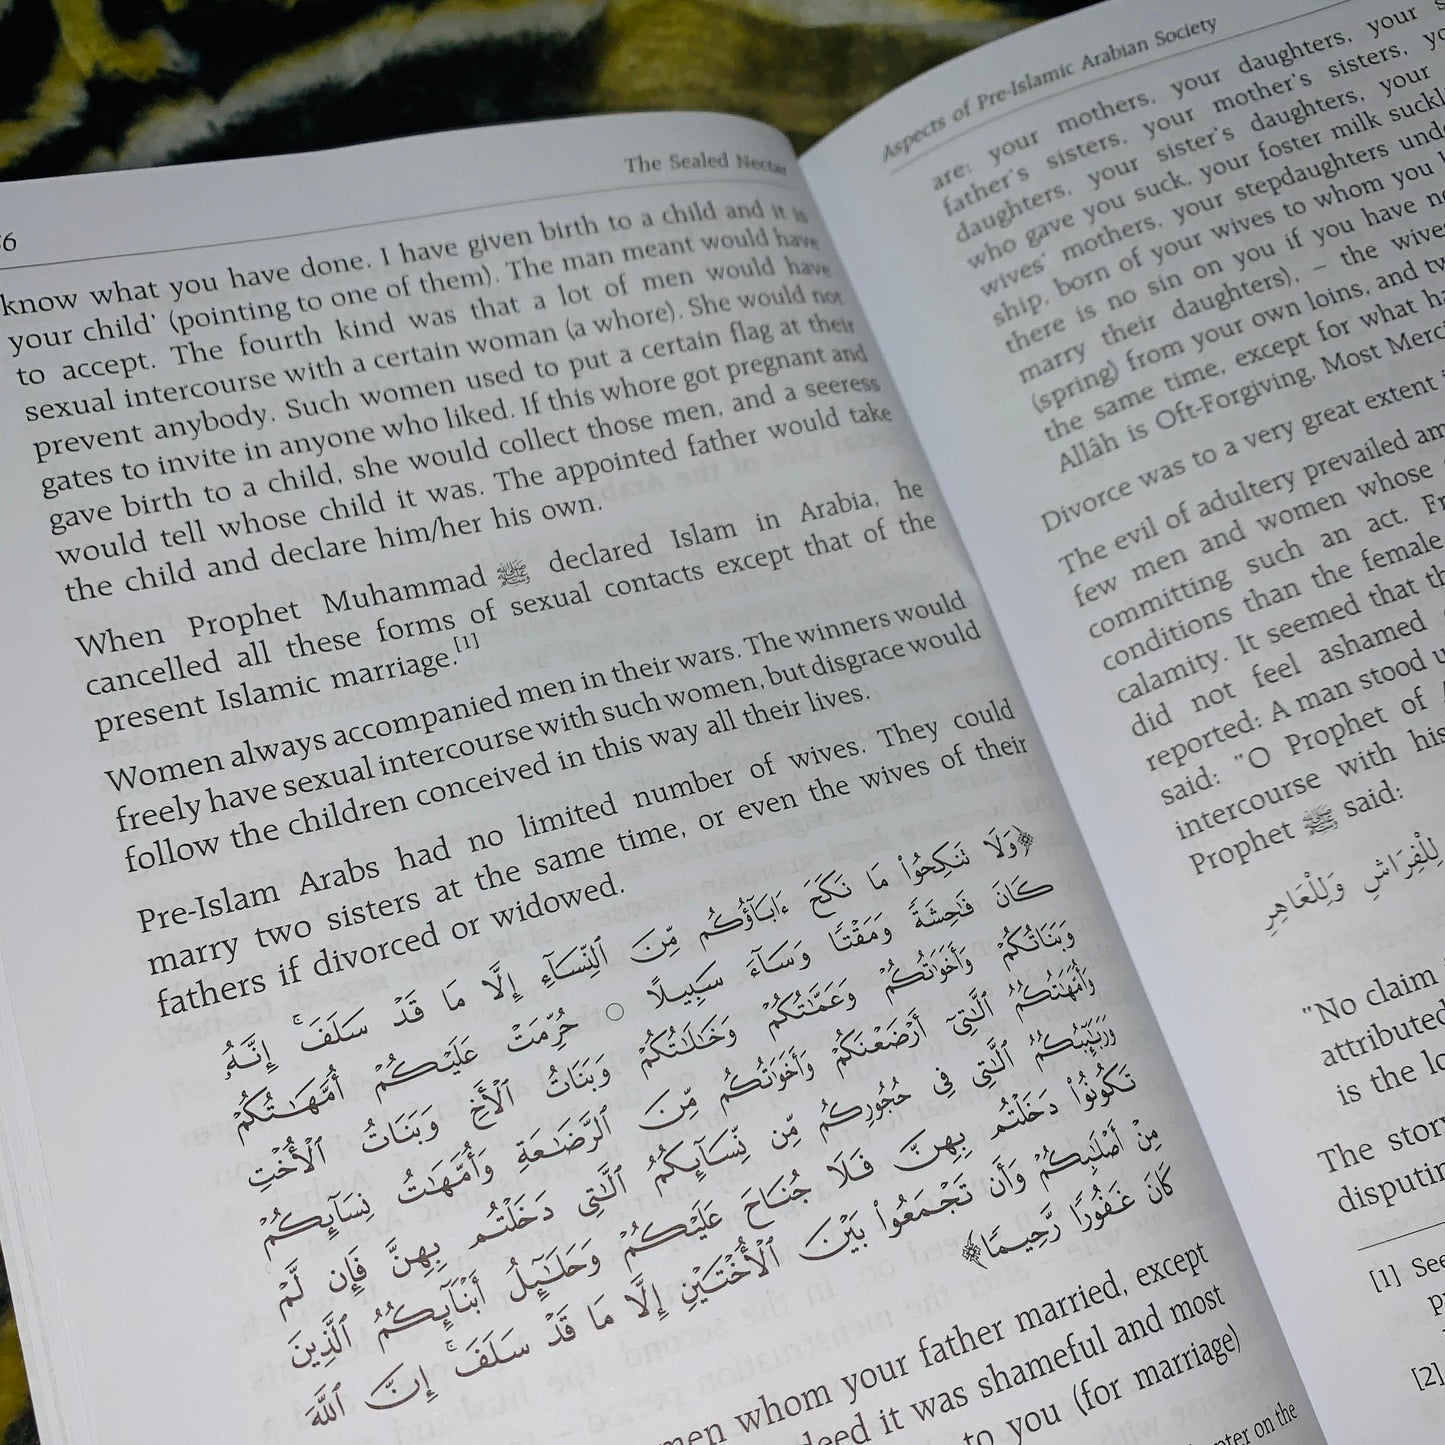 The Sealed Nectar
know what you have done. I have given birth to a child and it is
your child' (pointing to one of them). The man meant would have
to accept. The fourth kind was that a lot of men would have
sexual intercourse with a certain woman (a whore). She would not
prevent anybody. Such women used to put a certain flag at their
gates to invite in anyone who liked. If this whore got pregnant and
gave birth to a child, she would collect those men, and a seeress
would tell whose child it was. The appointed father would take
the child and declare him/her his own.
When Prophet Muhammad ﷺ declared Islam in Arabia, he
cancelled all these forms of sexual contacts except that of the
present Islamic marriage.[1]
Women always accompanied men in their wars. The winners would
freely have sexual intercourse with such women, but disgrace would
follow the children conceived in this way all their lives.
Pre-Islam Arabs had no limited number of wives. They could
marry two sisters at the same time, or even the wives of their
fathers if divorced or widowed.
﴿وَلَا تَنكِحُوا۟ مَا نَكَحَ ءَابَآؤُكُم مِّنَ ٱلنِّسَآءِ إِلَّا مَا قَدْ سَلَفَ ۚ إِنَّهُۥ
كَانَ فَٰحِشَةً وَمَقْتًا وَسَآءَ سَبِيلًا ○ حُرِّمَتْ عَلَيْكُمْ أُمَّهَٰتُكُمْ
وَبَنَاتُكُمْ وَأَخَوَٰتُكُمْ وَعَمَّٰتُكُمْ وَخَٰلَٰتُكُمْ وَبَنَاتُ ٱلْأَخِ وَبَنَاتُ ٱلْأُخْتِ
وَأُمَّهَٰتُكُمُ ٱلَّٰتِىٓ أَرْضَعْنَكُمْ وَأَخَوَٰتُكُم مِّنَ ٱلرَّضَٰعَةِ وَأُمَّهَٰتُ نِسَآئِكُمْ
وَرَبَٰٓئِبُكُمُ ٱلَّٰتِى فِى حُجُورِكُم مِّن نِّسَآئِكُمُ ٱلَّٰتِى دَخَلْتُم بِهِنَّ فَإِن لَّمْ
تَكُونُوا۟ دَخَلْتُم بِهِنَّ فَلَا جُنَاحَ عَلَيْكُمْ وَحَلَٰٓئِلُ أَبْنَآئِكُمُ ٱلَّذِينَ
مِنْ أَصْلَٰبِكُمْ وَأَن تَجْمَعُوا۟ بَيْنَ ٱلْأُخْتَيْنِ إِلَّا مَا قَدْ سَلَفَ ۚ إِنَّ ٱللَّهَ
كَانَ غَفُورًا رَّحِيمًا﴾
whom your father married, except
it was shameful and most
to you (for marriage)
on the
Aspects of Pre-Islamic Arabian Society
are: your mothers, your daughters, your
father's sisters, your mother's sisters,
daughters, your sister's daughters, your
who gave you suck, your foster milk
wives' mothers, your stepdaughters
ship, born of your wives to whom you
there is no sin on you if you have
marry their daughters), – the
(spring) from your own loins, and
the same time, except for what
Allâh is Oft-Forgiving, Most
Divorce was to a very great extent
The evil of adultery prevailed
few men and women whose
committing such an act.
conditions than the female
calamity. It seemed that
did not feel ashamed
reported: A man stood
said: "O Prophet of
intercourse with his
Prophet ﷺ said:
لِلْفِرَاشِ وَلِلْعَاهِرِ
"No claim
attributed
is the
The
[1] See
[2]